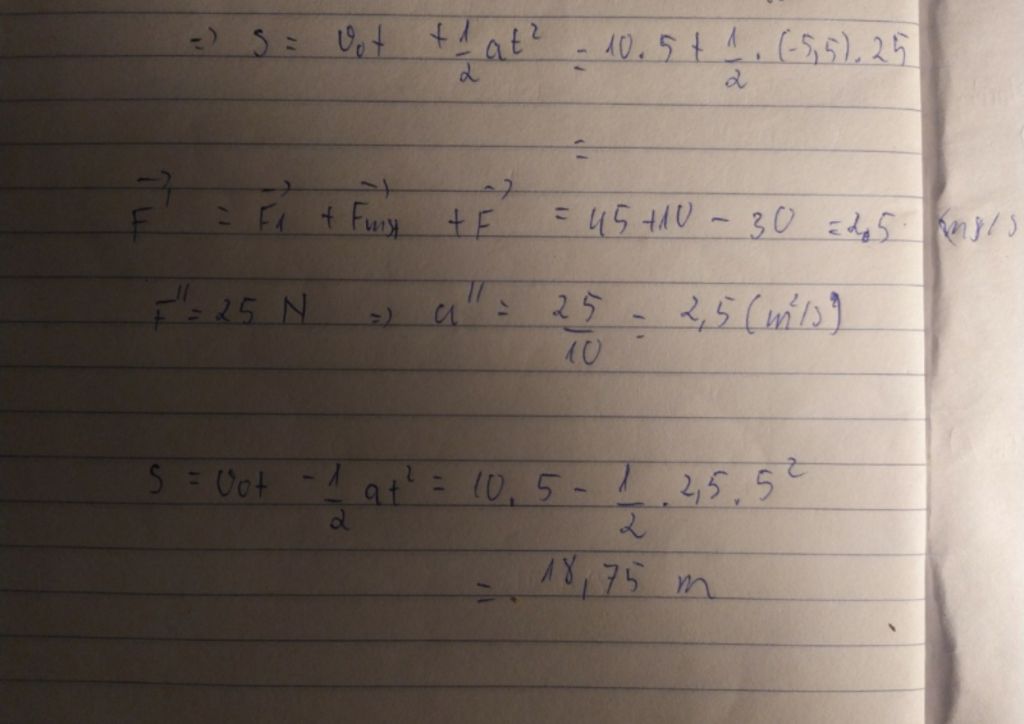 => S = v₀t + 1/2 at² = 10.5 + 1/2 . (-5,5).25
=
F⃗' = F⃗1 + F⃗msx + F⃗ = 45 + 10 - 30 = 25
F'' = 25 N => a'' = 25/10 = 2,5 (m²/s²)
S = v₀t - 1/2 at² = 10. 5 - 1/2 . 2,5. 5²
= 18,75 m